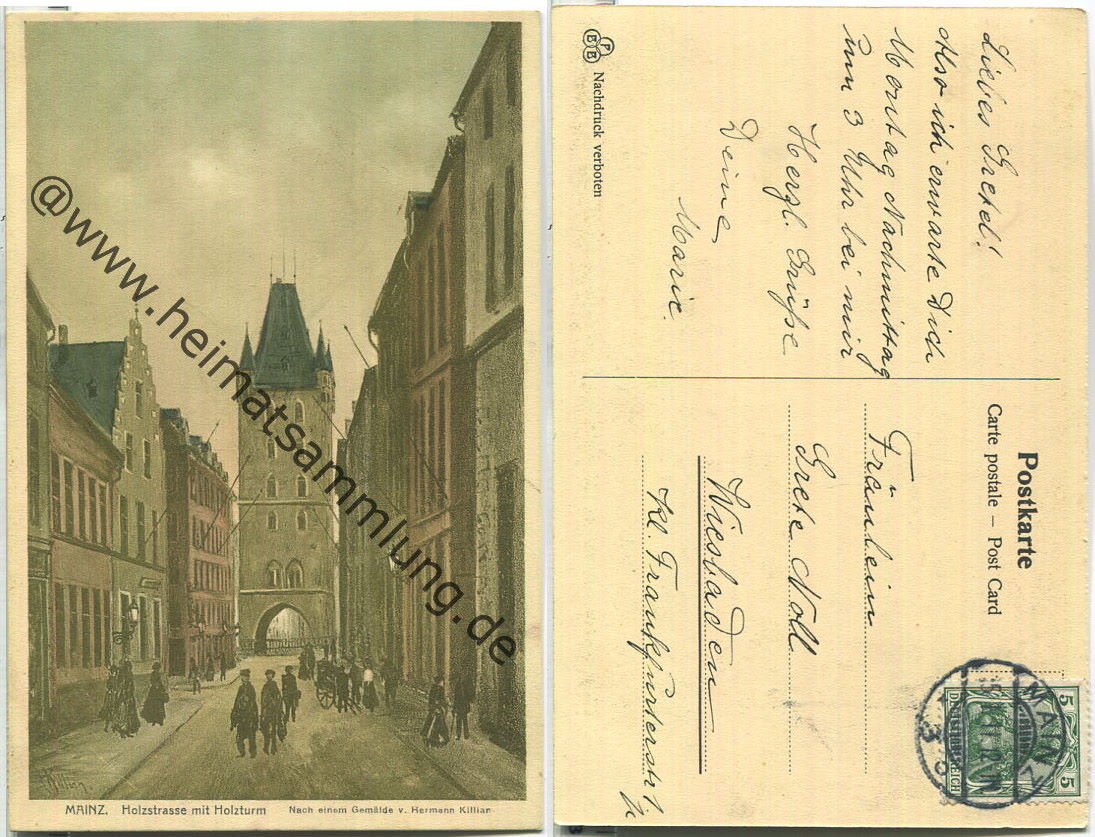 @www.heimatsammlung.de
HKillian
MAINZ. Holzstrasse mit Holzturm
Nach einem Gemälde v. Hermann Killian
Postkarte
Carte postale – Post Card
Liebes Gretel!
Also ich erwarte Dich
Montag Nachmittag
um 3 Uhr bei mir
Herzl. Grüße
Deine
Marie.
PEEB
Nachdruck verboten
MAINZ
5 5
DEUTSCHES REICH
Fräulein
Grete Noll
Wiesbaden
Kl. Frankfurterstr 1